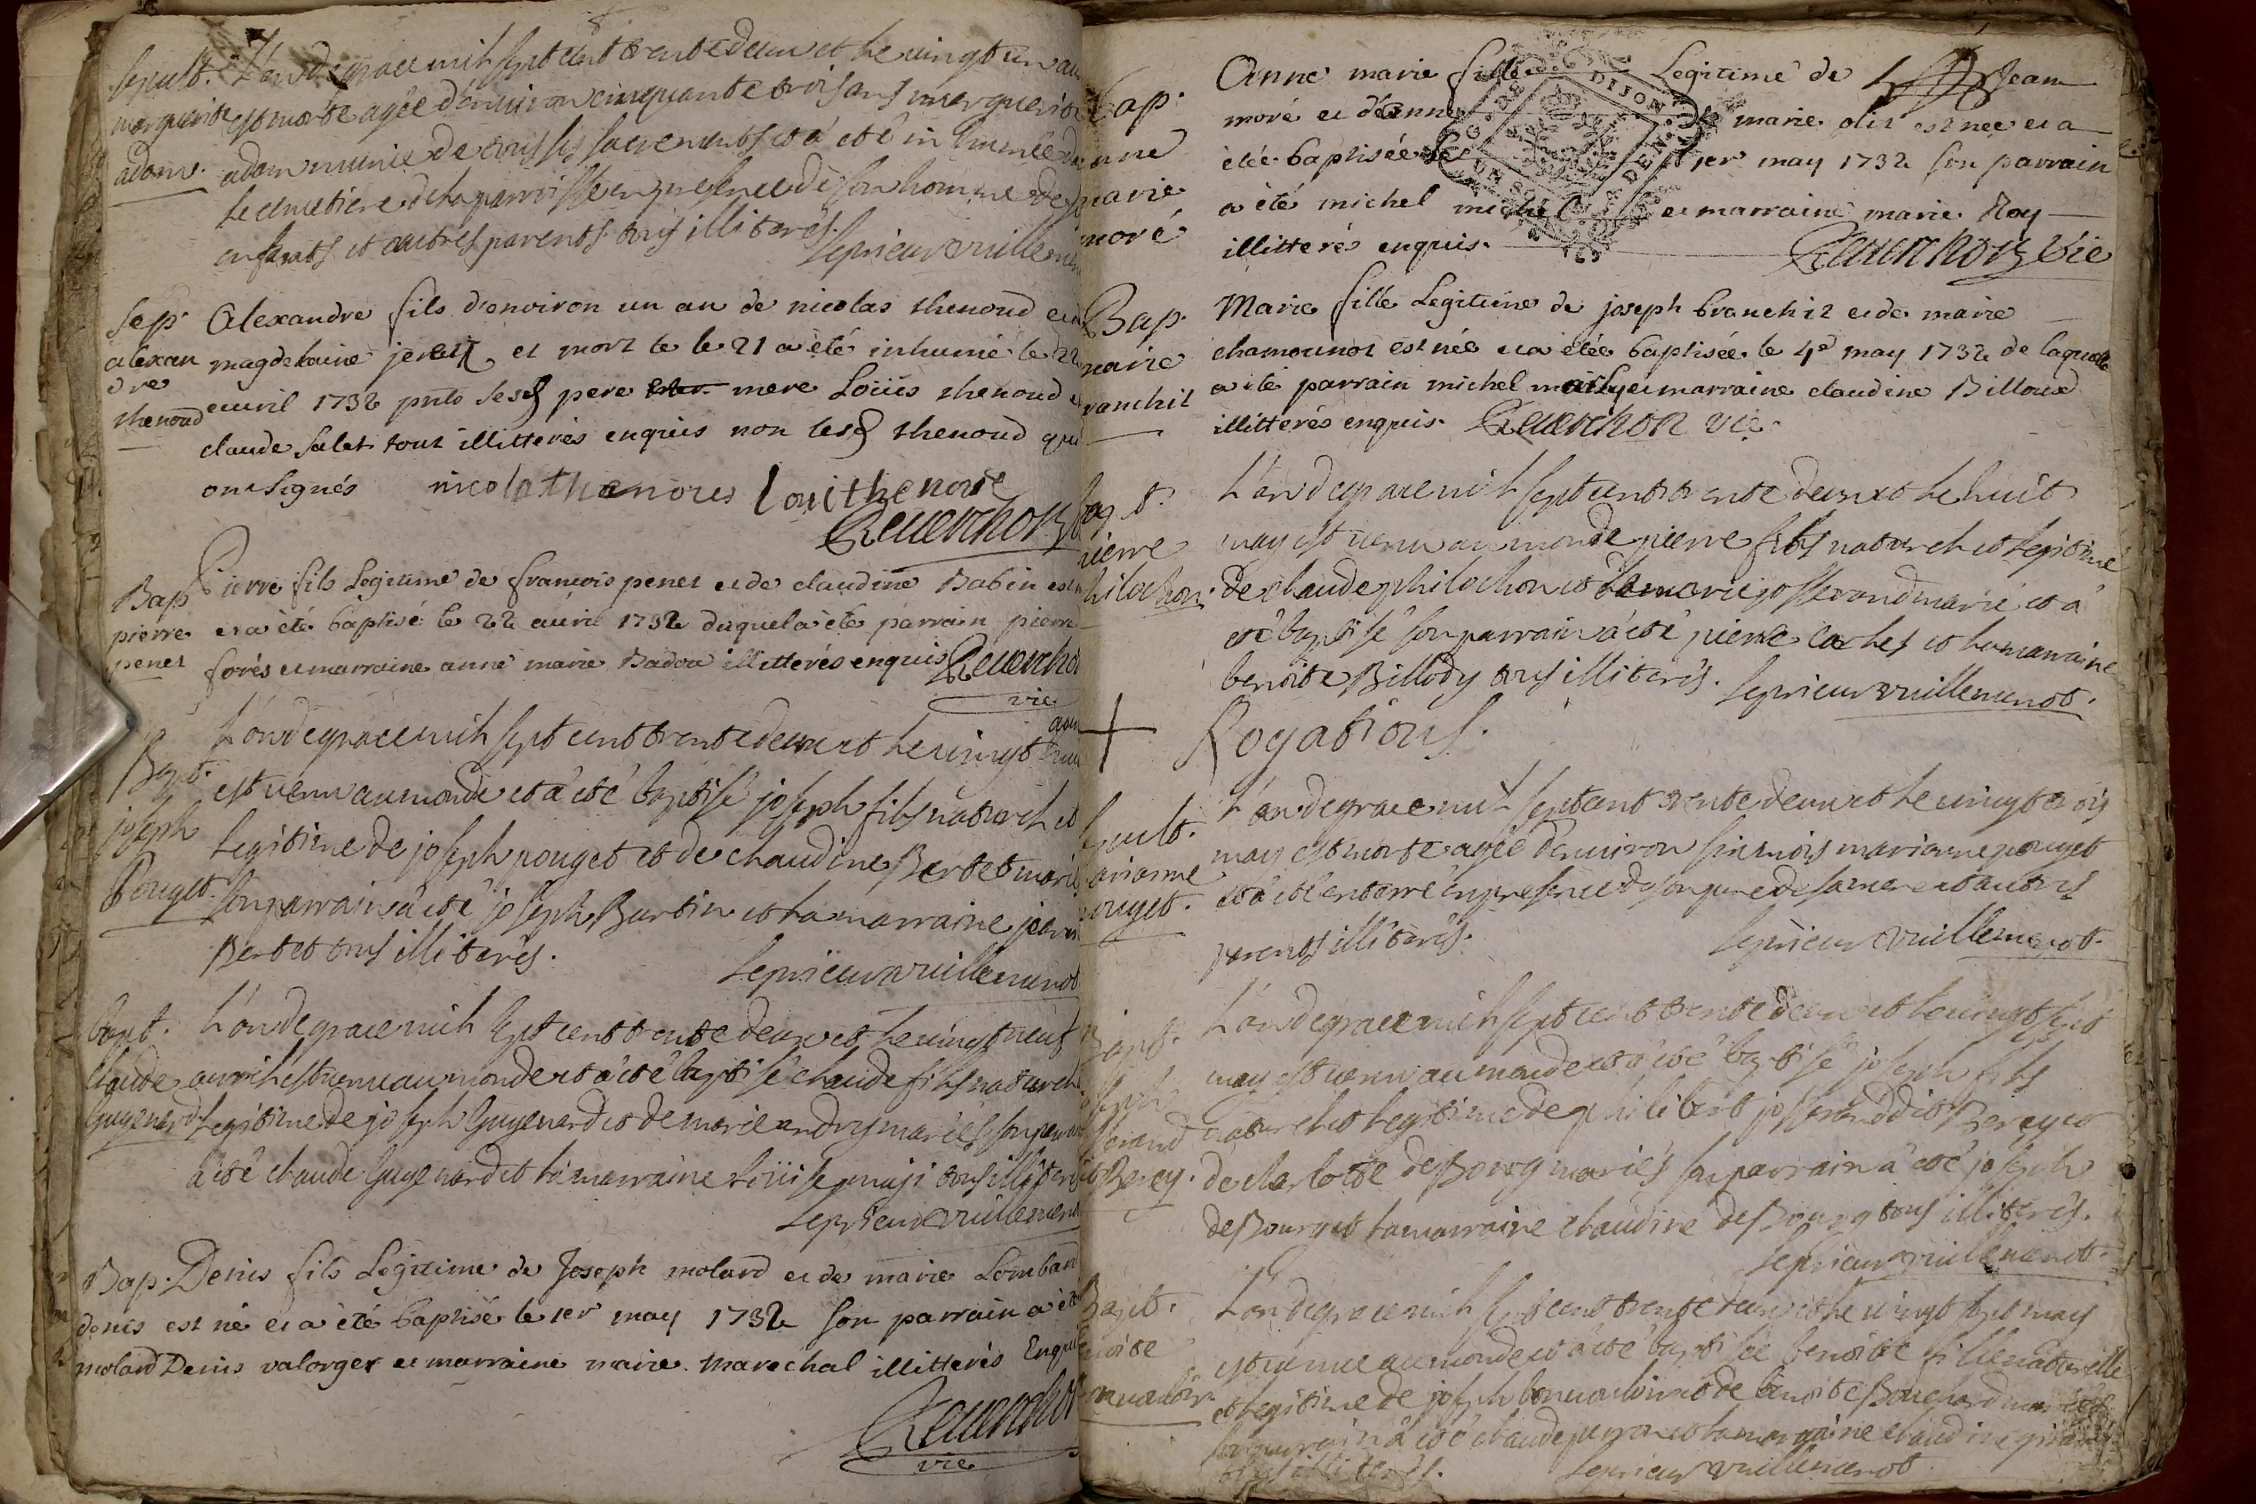 Sepult.
marguerite
adam.
L'an de grace mil sept cent trente deux et le vingt un
est morte agée d'environ cinquante trois ans marguerite
adam munie de tous ses sacrements et a eté inhumée
le cimetiere de la parroisse en presence de son homme de
enfants et autres parents tous illiterés.
le prieur vuillemenot
Sep.
alexan
dre
thenoud
Alexandre fils d'environ un an de nicolas thenoud
magdelaine et mort le 21 a été inhumé le 22
auril 1732 pnts sesd pere mere Loüis thenoud
claude Salet tout illitterés enquis non lesd thenoud qui
ont signés nicola thenoux loui thenoux
Reuerchon
Bap
pierre
penet
Pierre fils Legitime de francois penet et de claudine Babin est
et a été baptisé le 22 auril 1732 duquel a été parrain pierre
forés et marraine anne marie Badou illitterés enquis Reuerchon
vic
Bapt.
joseph
Pouget.
L'an de grace mil sept cent trente deux et le vingt
est venu au monde et a eté baptisé joseph fils naturel et
legitime de joseph pouget et de claudine Bertet
son parrain a eté joseph Burtin et la marraine
Bertet tous illiterés.
le prieur vuillemenot
bapt.
Claude
Guyenard
L'an de grace mil sept cent trente deux et le vingt neuf
avril est venu au monde et a eté baptisé claude fils naturel
legitime de joseph Guyenard et de marie andry mariés son
a eté claude Guyenard et la marraine Loüise tous illiterés
le prieur vuillemenot
Bap.
denis
molard
Denis fils Legitime de Joseph molard et de marie Lombar
est né et a été baptisé le 1er may 1732 son parrain a été
Denis valorget et marraine marie marechal illitterés Enquis
Reuerchon
vic
Bap.
anne
marie
moré
Anne marie fille Legitime de Jean
moré et d'anne marie olit est nee et a
étée baptisée le 1er may 1732 son parrain
a été michel michel et marraine marie Roy
illitteré enquis.
Reuerchon Vic
Bap.
marie
branchit
Marie fille Legitime de joseph branchit et de marie
chamounot est née et a étée baptisée le 4e may 1732 de laquelle
a été parrain michel michel et marraine claudine Billoud
illitterés enquis. Reuerchon vic.
bapt.
pierre
philochon.
L'an de grace mil sept cent trente deux et le huit
may est venu au monde pierre fils naturel et legitime
de claude philochon et de marie josserand marié et a
eté baptisé son parrain a eté pierre et la marraine
benoite Billody tous illiterés. le prieur vuillemenot.
+ Rogations.
Sepult.
marianne
pouget.
L'an de grace mil sept cent trente deux et le vingt trois
may est morte agée d'environ six mois marianne pouget
et a eté enterré en presence de son pere de sa mere et autres
parents illiterés. le prieur vuillemenot.
Bapt.
joseph
josserand
dit Berey.
L'an de grace mil sept cent trente deux et le vingt sept
may est venu au monde et a eté baptisé joseph fils
naturel et legitime de philibert josserand dit Berey et
de charlotte de Bourg mariés son parrain a eté joseph
de Bourg et la marraine claudine de Bourg tous illiterés.
le prieur vuillemenot.
Bapt.
benoite
L'an de grace mil sept cent trente deux et le vingt sept may
est venue au monde et a eté baptisée benoite fille naturelle
et legitime de joseph bonvaloir et de benoite Bouchard mariés
son parrain a eté claude et la marraine claudine
tous illiterés. le prieur vuillemenot